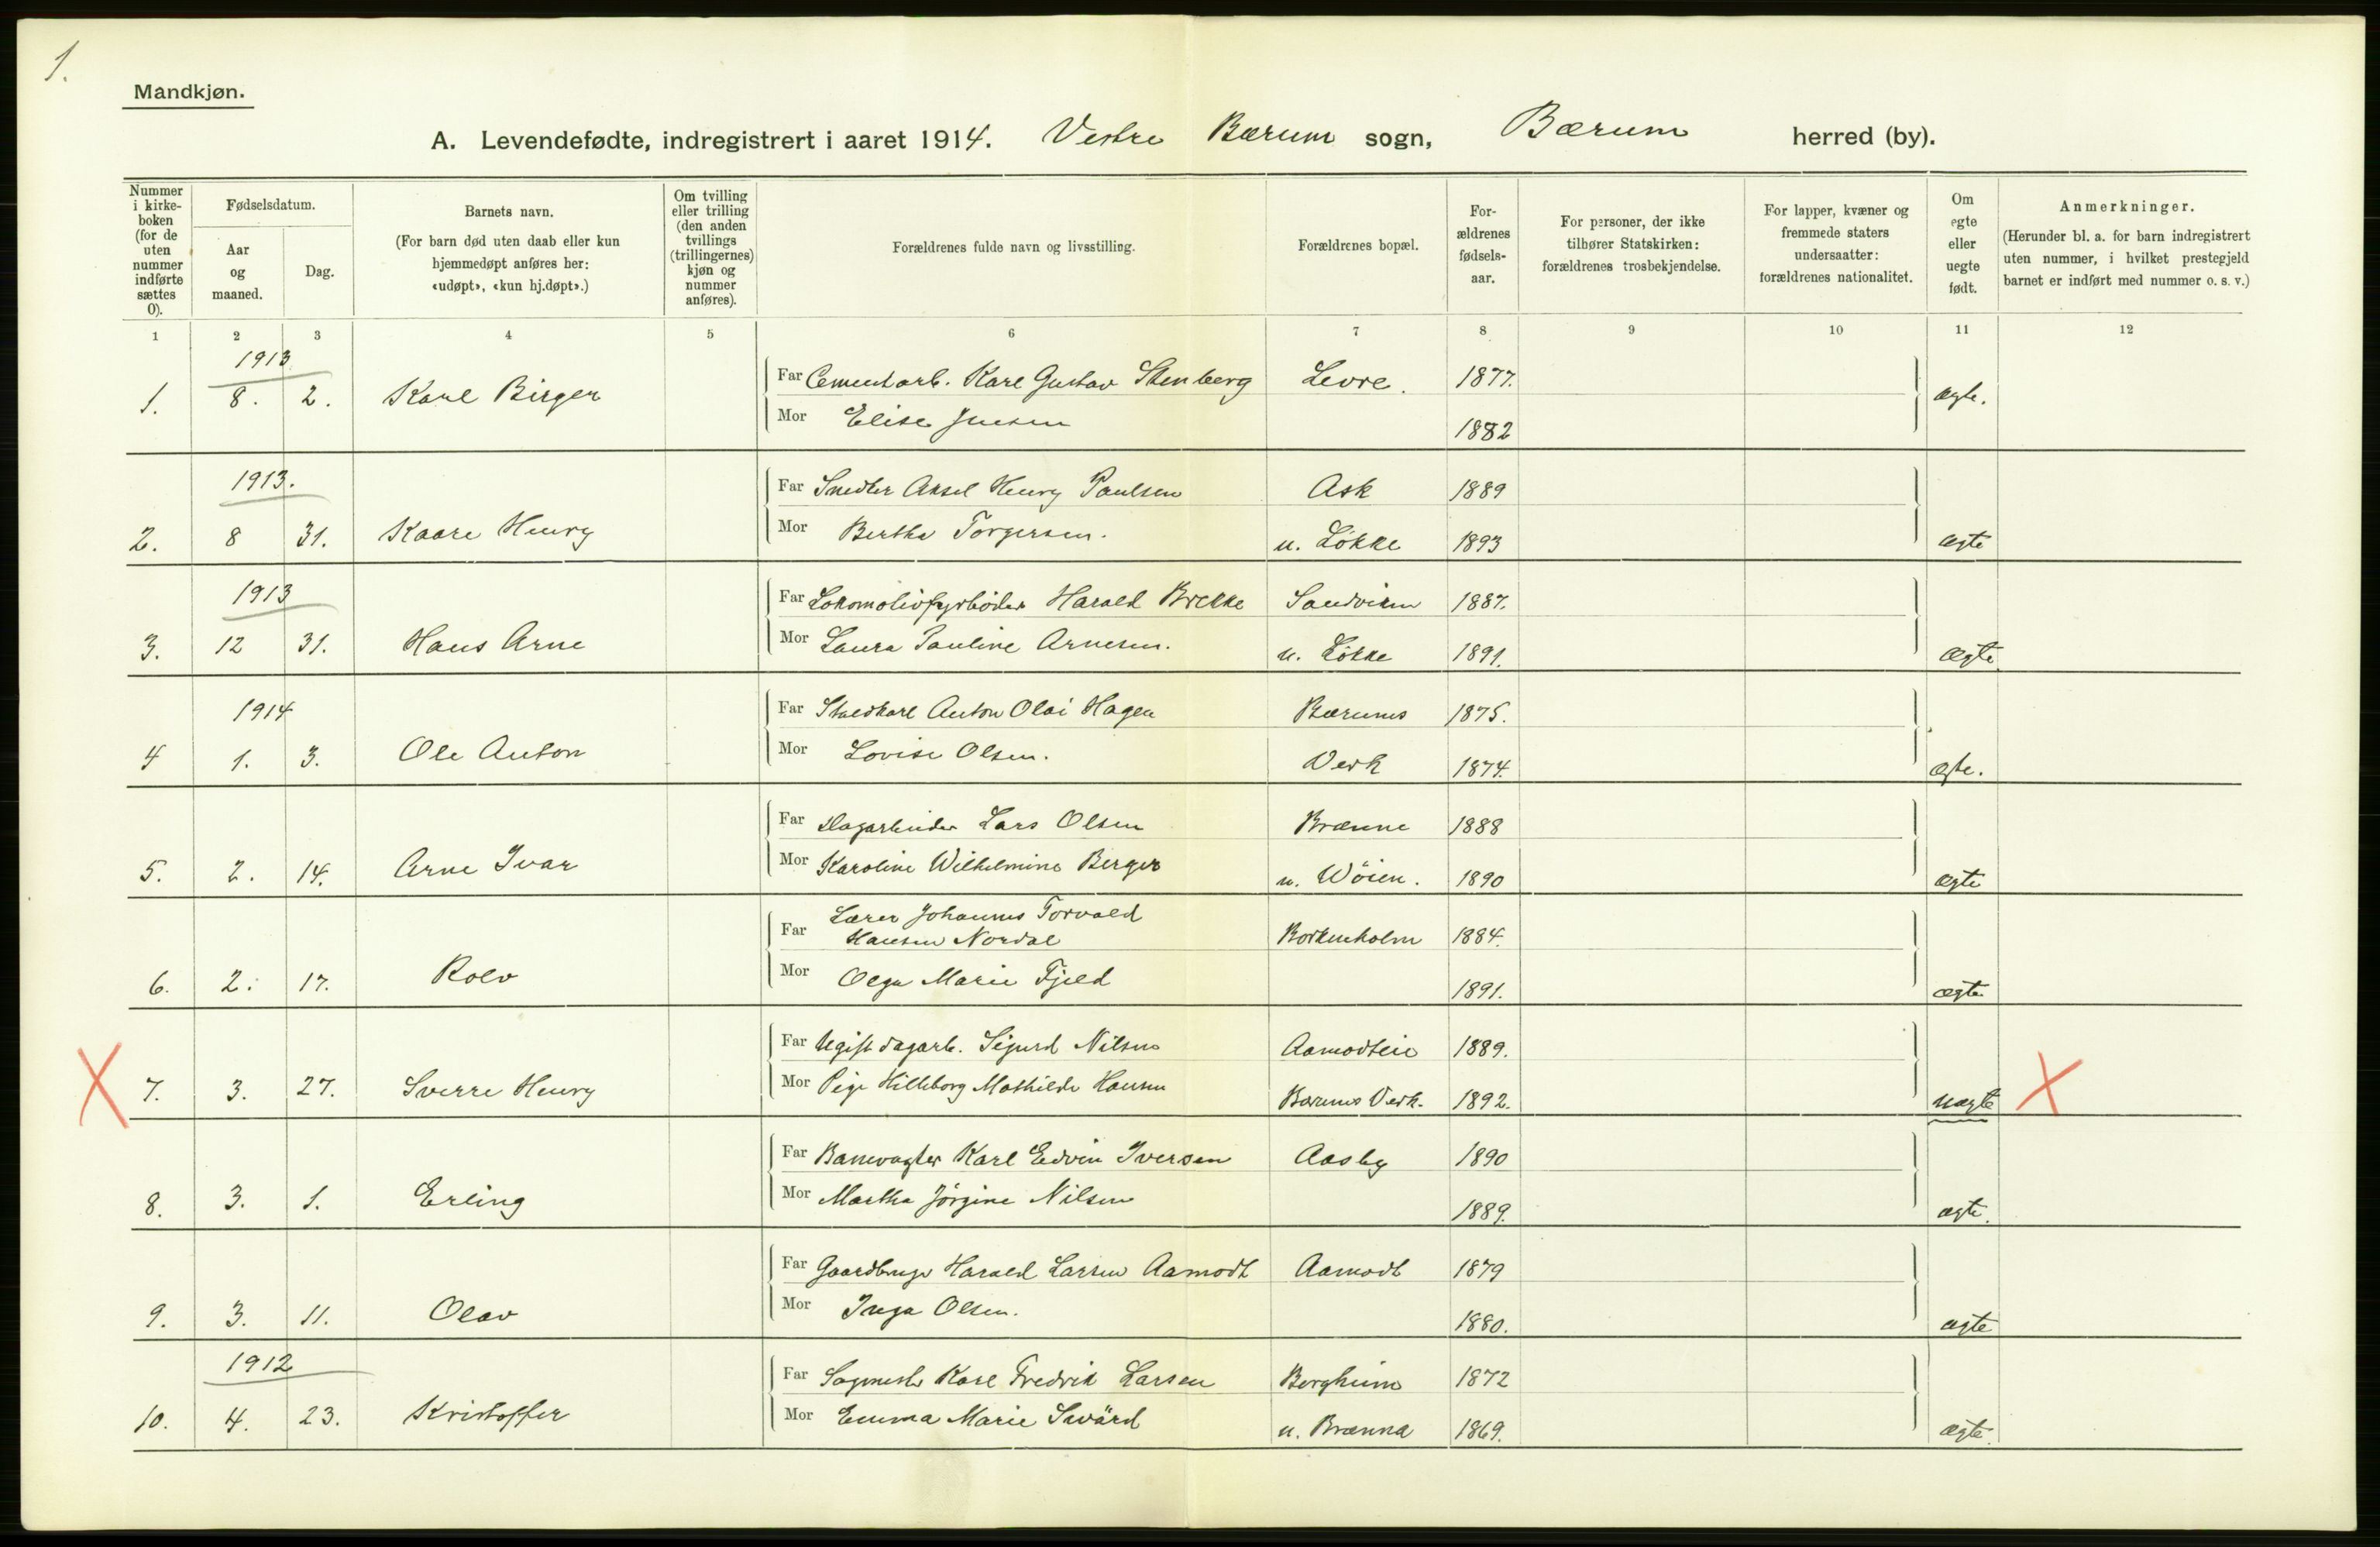 1.
Mandkjøn.
A. Levendefødte, indregistrert i aaret 1914. Vestre Bærum sogn, Bærum herred (by).
Nummer i kirke- boken (for de uten nummer indførte sættes 0).
Fødselsdatum.
Aar og maaned.
Dag.
Barnets navn.
(For barn død uten daab eller kun hjemmedøpt anføres her: «udøpt», «kun hj.døpt».)
Om tvilling eller trilling (den anden tvillings (trillingernes) kjøn og nummer anføres).
Forældrenes fulde navn og livsstilling.
Forældrenes bopæl.
For- ældrenes fødsels- aar.
For personer, der ikke tilhører Statskirken: forældrenes trosbekjendelse.
For lapper, kvæner og fremmede staters undersaatter: forældrenes nationalitet.
Om egte eller uegte født.
Anmerkninger.
(Herunder bl. a. for barn indregistrert uten nummer, i hvilket prestegjeld barnet er indført med nummer o. s. v.)
1 2 3 4 5 6 7 8 9 10 11 12
1913
1. 8. 2. Karl Birger Far Cementarb. Karl Gustav Stenberg Levre. 1877. ægte.
Mor Elise Jensen 1882
1913.
Far Snedker Aksel Henry Paulsen Ask 1889
2. 8 31. Kaare Henry Mor Bertha Torgersen. u. Løkke 1893 ægte
1913
Far Lokomotivfyrbøder Harald Brekke Sandviken 1887.
3. 12 31. Hans Arne Mor Laura Pauline Arnesen. u. Løkke 1891. ægte
1914
Far Staldkarl Anton Olai Hagen Bærums 1875.
4 1. 3. Ole Anton Mor Lovise Olsen. Verk 1874. ægte.
Far Dagarbeider Lars Olsen Brænne 1888
5. 2. 14. Arne Ivar Mor Karoline Wilhelmine Berger u. Wöien. 1890 ægte
Lærer Johannes Torvald
Far Hansen Nordal Borkenholm 1884.
6. 2. 17. Rolv Mor Olga Marie Fjeld 1891. ægte
Far Ugift dagarb. Sigurd Nilsen Aamodteie 1889.
7. 3. 27. Sverre Henry Mor Pige Hilleborg Mathilde Hansen Bærums Verk. 1892. uægte
Far Banevogter Karl Edvin Iversen Aasby 1890
8. 3. 1. Erling Mor Martha Jörgine Nilsen 1889. ægte.
Far Gaardbruger Harald Larsen Aamodt Aamodt 1879
9. 3. 11. Olav Mor Inga Olsen. 1880. ægte
1912
Far Sagmester Karl Fredrik Larsen Bergheim 1872
10. 4. 23. Kristoffer Mor Emma Marie Swärd u. Brænna 1869. ægte.